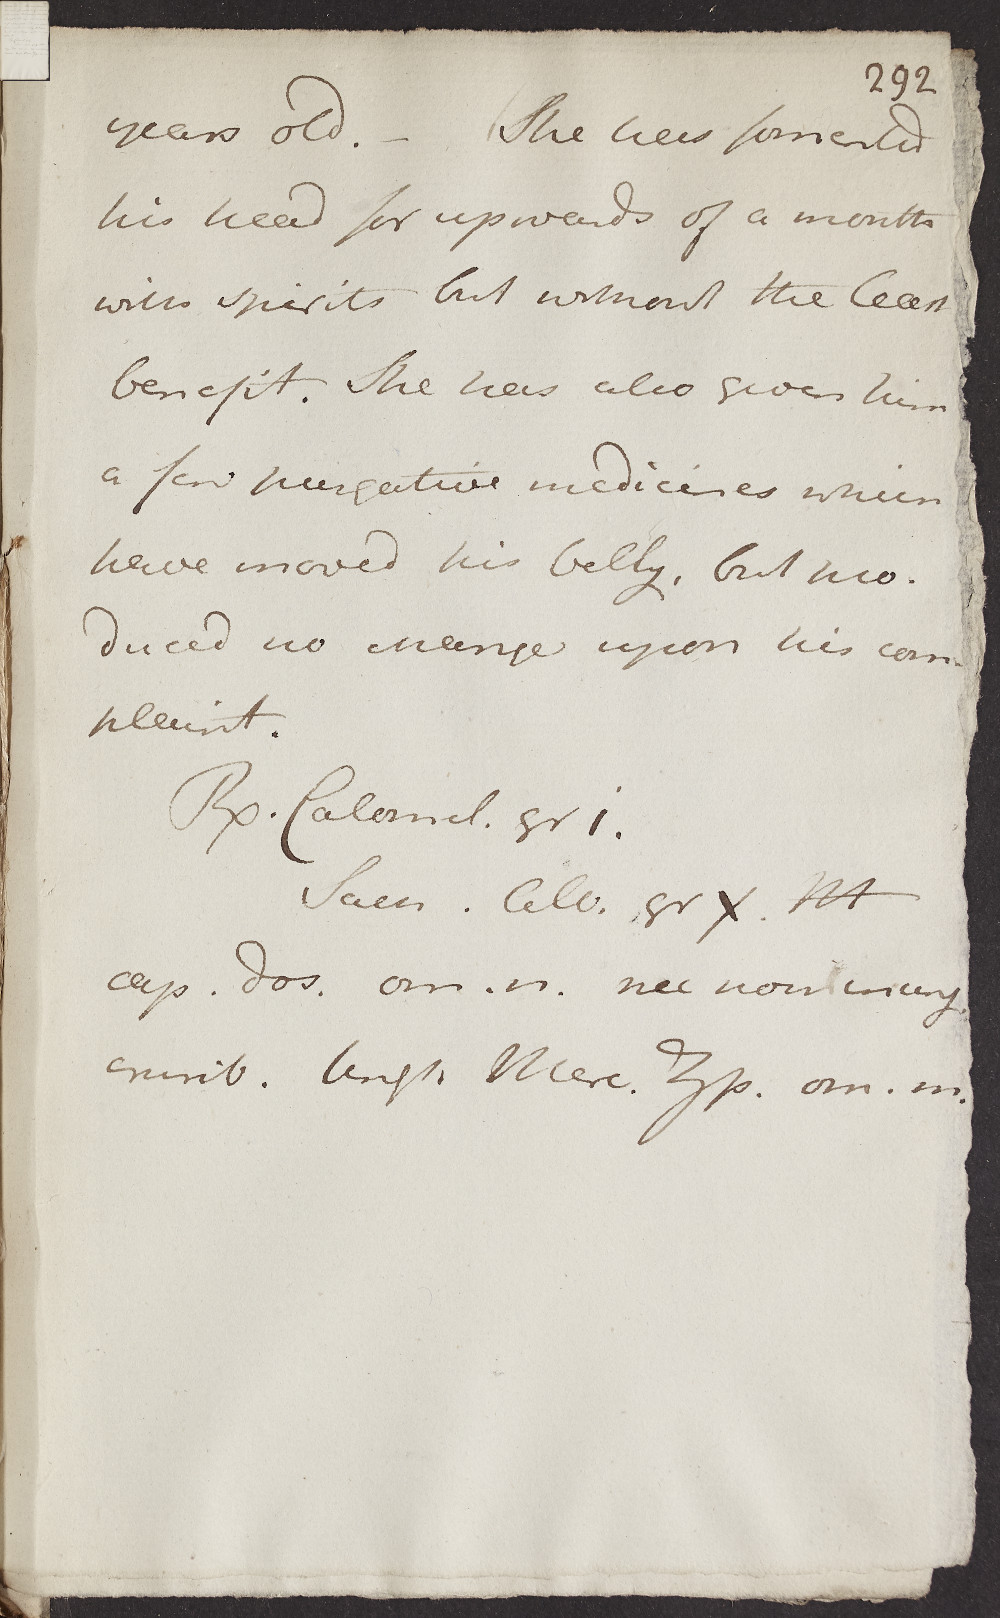 292
years old. - She has fomented
his head for upwards of a month
with spirits but without the least
benefit. She has also given him
a few purgative medicines which
have moved his belly, but pro-
duced no change upon his com-
plaint.
Rx. Calomel. gr i.
Sacch. Alb. gr X. M
cap. dos. om. n. nec non inung.
crurib. Ungt Merc. Ʒſs. om. n.